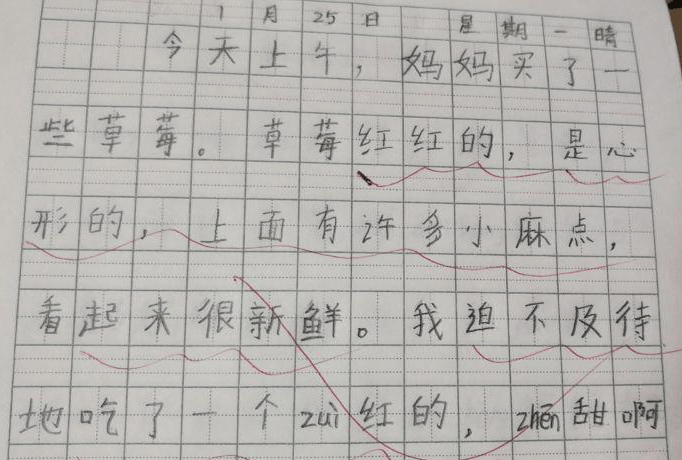 1月25日 星期一 晴
今天上午，妈妈买了一
些草莓。草莓红红的，是心
形的，上面有许多小麻点，
看起来很新鲜。我迫不及待
地吃了一个zuì红的，zhēn甜啊